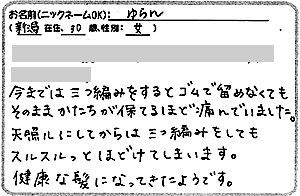 お名前(ニックネームOK): ゆらん
(新潟 在住、30 歳、性別: 女 )
今までは三つ編みをするとゴムで留めなくても
そのままかたちが保てるほど痛んでいました。
天照ルにしてからは三つ編みをしても
スルスルっとほどけてしまいます。
健康な髪になってきたようです。